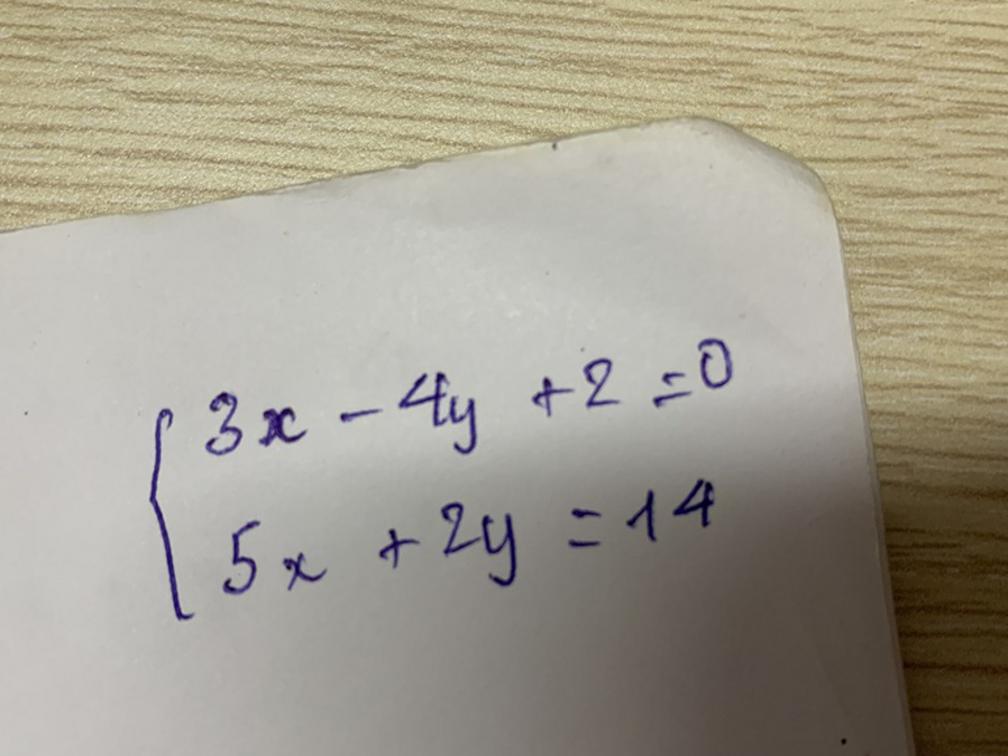 3x - 4y + 2 = 0
5x + 2y = 14